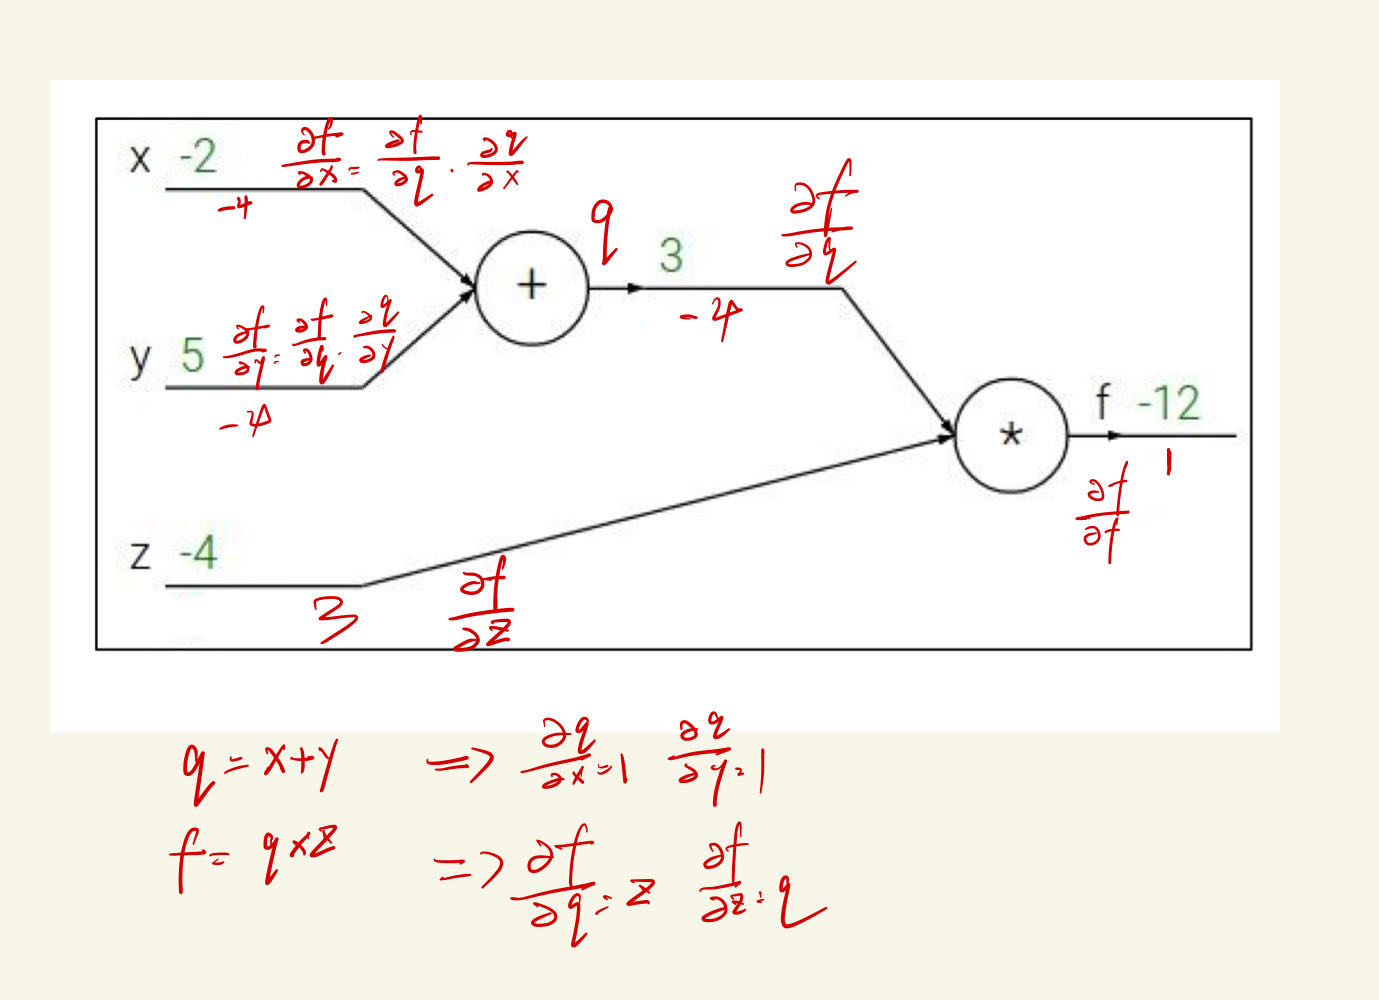 x -2 ∂f/∂x = ∂f/∂q · ∂q/∂x
-4
+
q 3 ∂f/∂q
-4
y 5 ∂f/∂y = ∂f/∂q · ∂q/∂y
-4
* f -12
1
∂f/∂f
z -4
3 ∂f/∂z
q = x+y => ∂q/∂x = 1 ∂q/∂y = 1
f = q×z => ∂f/∂q = z ∂f/∂z = q